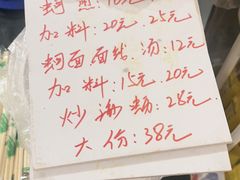 加料:20元 25元
面线 汤:12元
加料:15元 20元
炒 28元
大份:38元